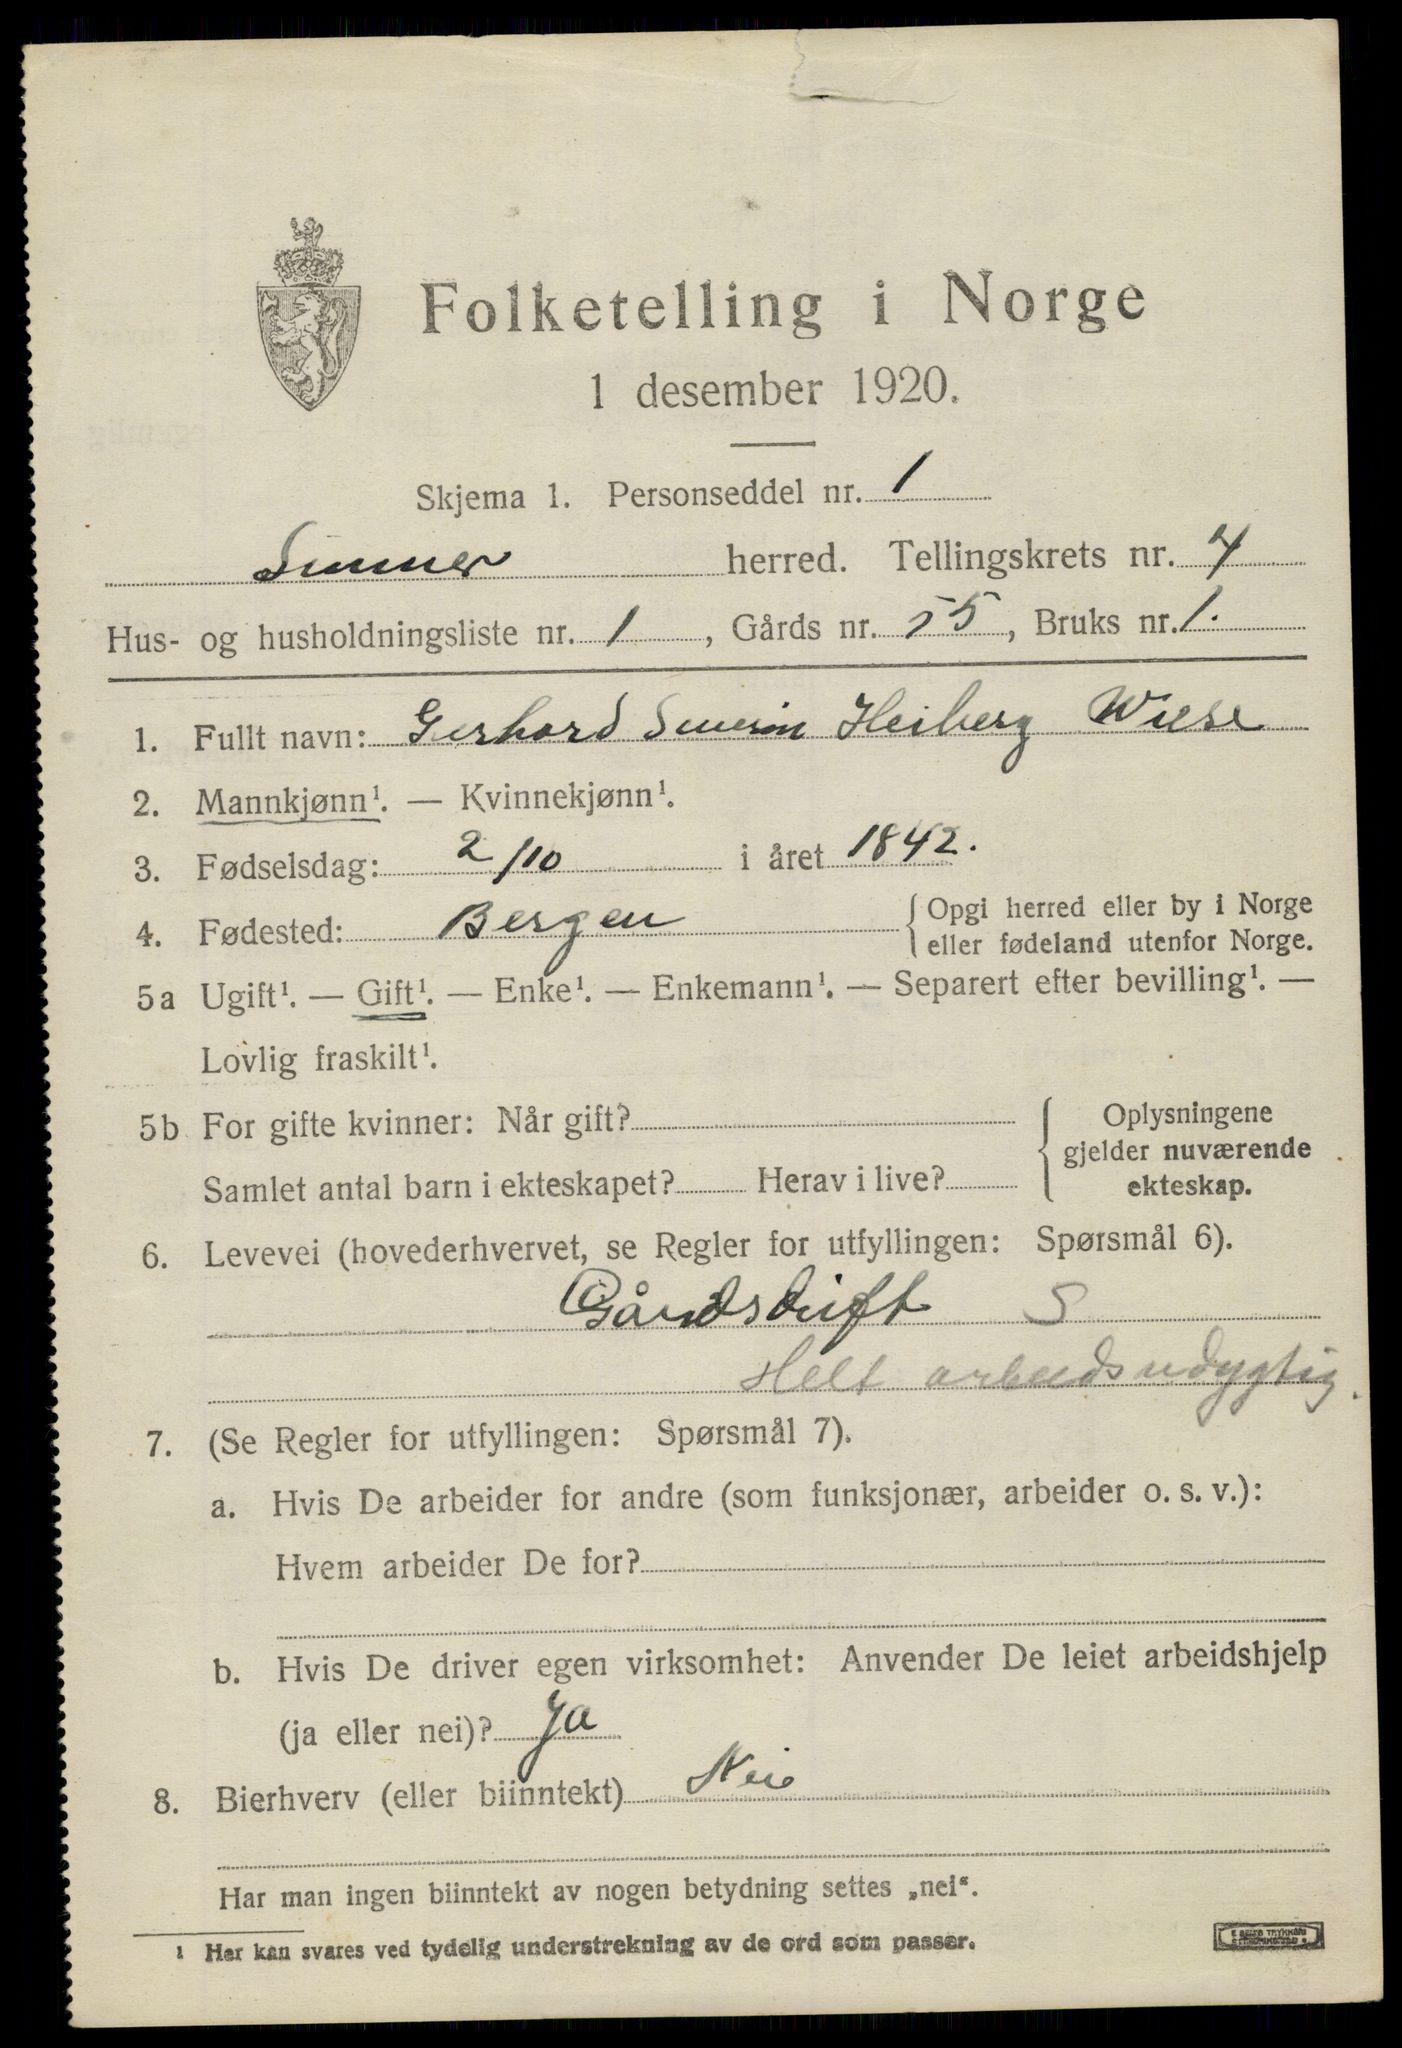 Folketelling i Norge
1 desember 1920.
Skjema 1. Personseddel nr. 1
herred. Tellingskrets nr. 4
Hus- og husholdningsliste nr. 1, Gårds nr. 55, Bruks nr. 1.
1. Fullt navn: Gerhard Severin Heiberg Wiese
2. Mannkjønn¹. — Kvinnekjønn¹.
3. Fødselsdag: 2/10 i året 1842.
4. Fødested: Bergen { Opgi herred eller by i Norge
eller fødeland utenfor Norge.
5a Ugift¹. — Gift¹. — Enke¹. — Enkemann¹. — Separert efter bevilling¹. —
Lovlig fraskilt¹.
5b For gifte kvinner: Når gift? { Oplysningene
gjelder nuværende
Samlet antal barn i ekteskapet? Herav i live? ekteskap.
6. Levevei (hovederhvervet, se Regler for utfyllingen: Spørsmål 6).
Gårdsdrift S
Helt arbeidsudygtig.
7. (Se Regler for utfyllingen: Spørsmål 7).
a. Hvis De arbeider for andre (som funksjonær, arbeider o. s. v.):
Hvem arbeider De for?
b. Hvis De driver egen virksomhet: Anvender De leiet arbeidshjelp
(ja eller nei)? Ja
8. Bierhverv (eller biinntekt) Nei
Har man ingen biinntekt av nogen betydning settes „nei“.
¹ Her kan svares ved tydelig understrekning av de ord som passer.